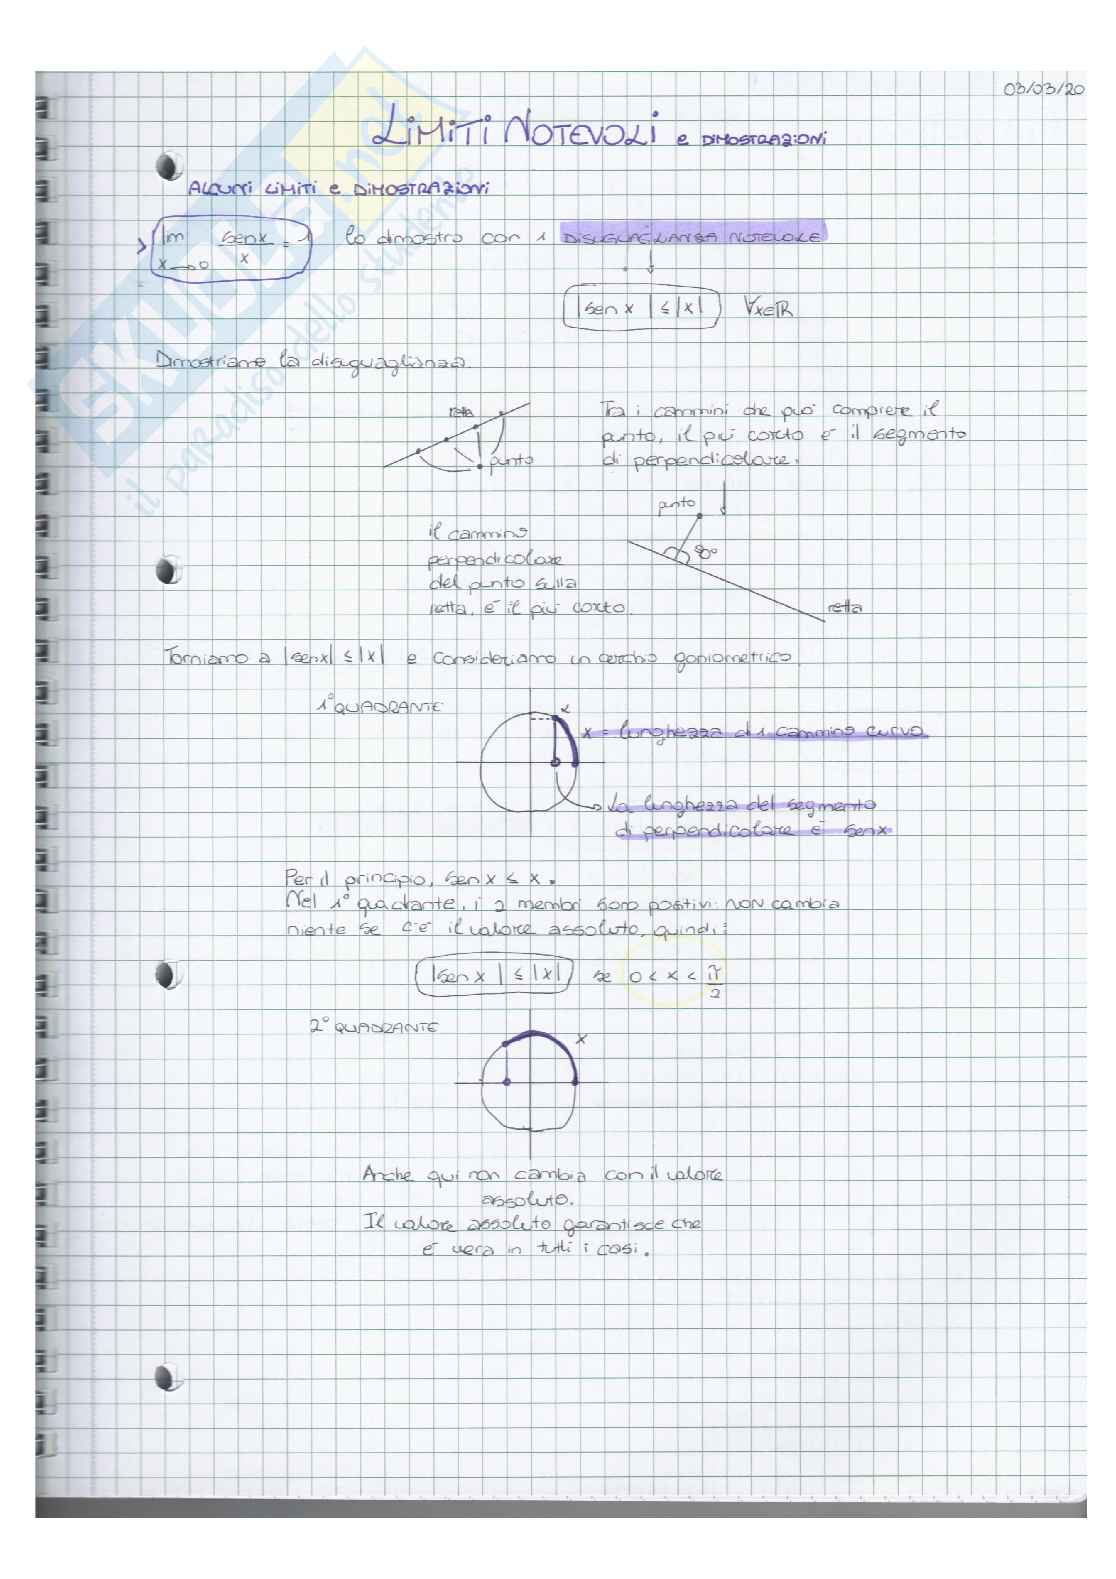 03/03/20
LIMITI NOTEVOLI e DIMOSTRAZIONI
ALCUNI LIMITI e DIMOSTRAZIONI
lim x→0 senx/x = 1 lo dimostro con 1 DISUGUAGLIANZA NOTEVOLE
|sen x| ≤ |x| ∀x∈ℝ
Dimostriamo la disuguaglianza.
retta
punto
Tra i cammini che può compiere il
punto, il più corto è il segmento
di perpendicolare.
punto
90°
retta
il cammino
perpendicolare
del punto sulla
retta, è il più corto.
Torniamo a |senx| ≤ |x| e consideriamo un cerchio goniometrico.
1° QUADRANTE
x
x = lunghezza di 1 cammino curvo.
La lunghezza del segmento
di perpendicolare è senx
Per il principio, sen x ≤ x.
Nel 1° quadrante, i 2 membri sono positivi: NON cambia
niente se c'è il valore assoluto, quindi:
|sen x| ≤ |x| se 0 < x < π/2
2° QUADRANTE
x
Anche qui non cambia con il valore
assoluto.
Il valore assoluto garantisce che
è vera in tutti i casi.
SKUOLA.net
il paradiso dello studente